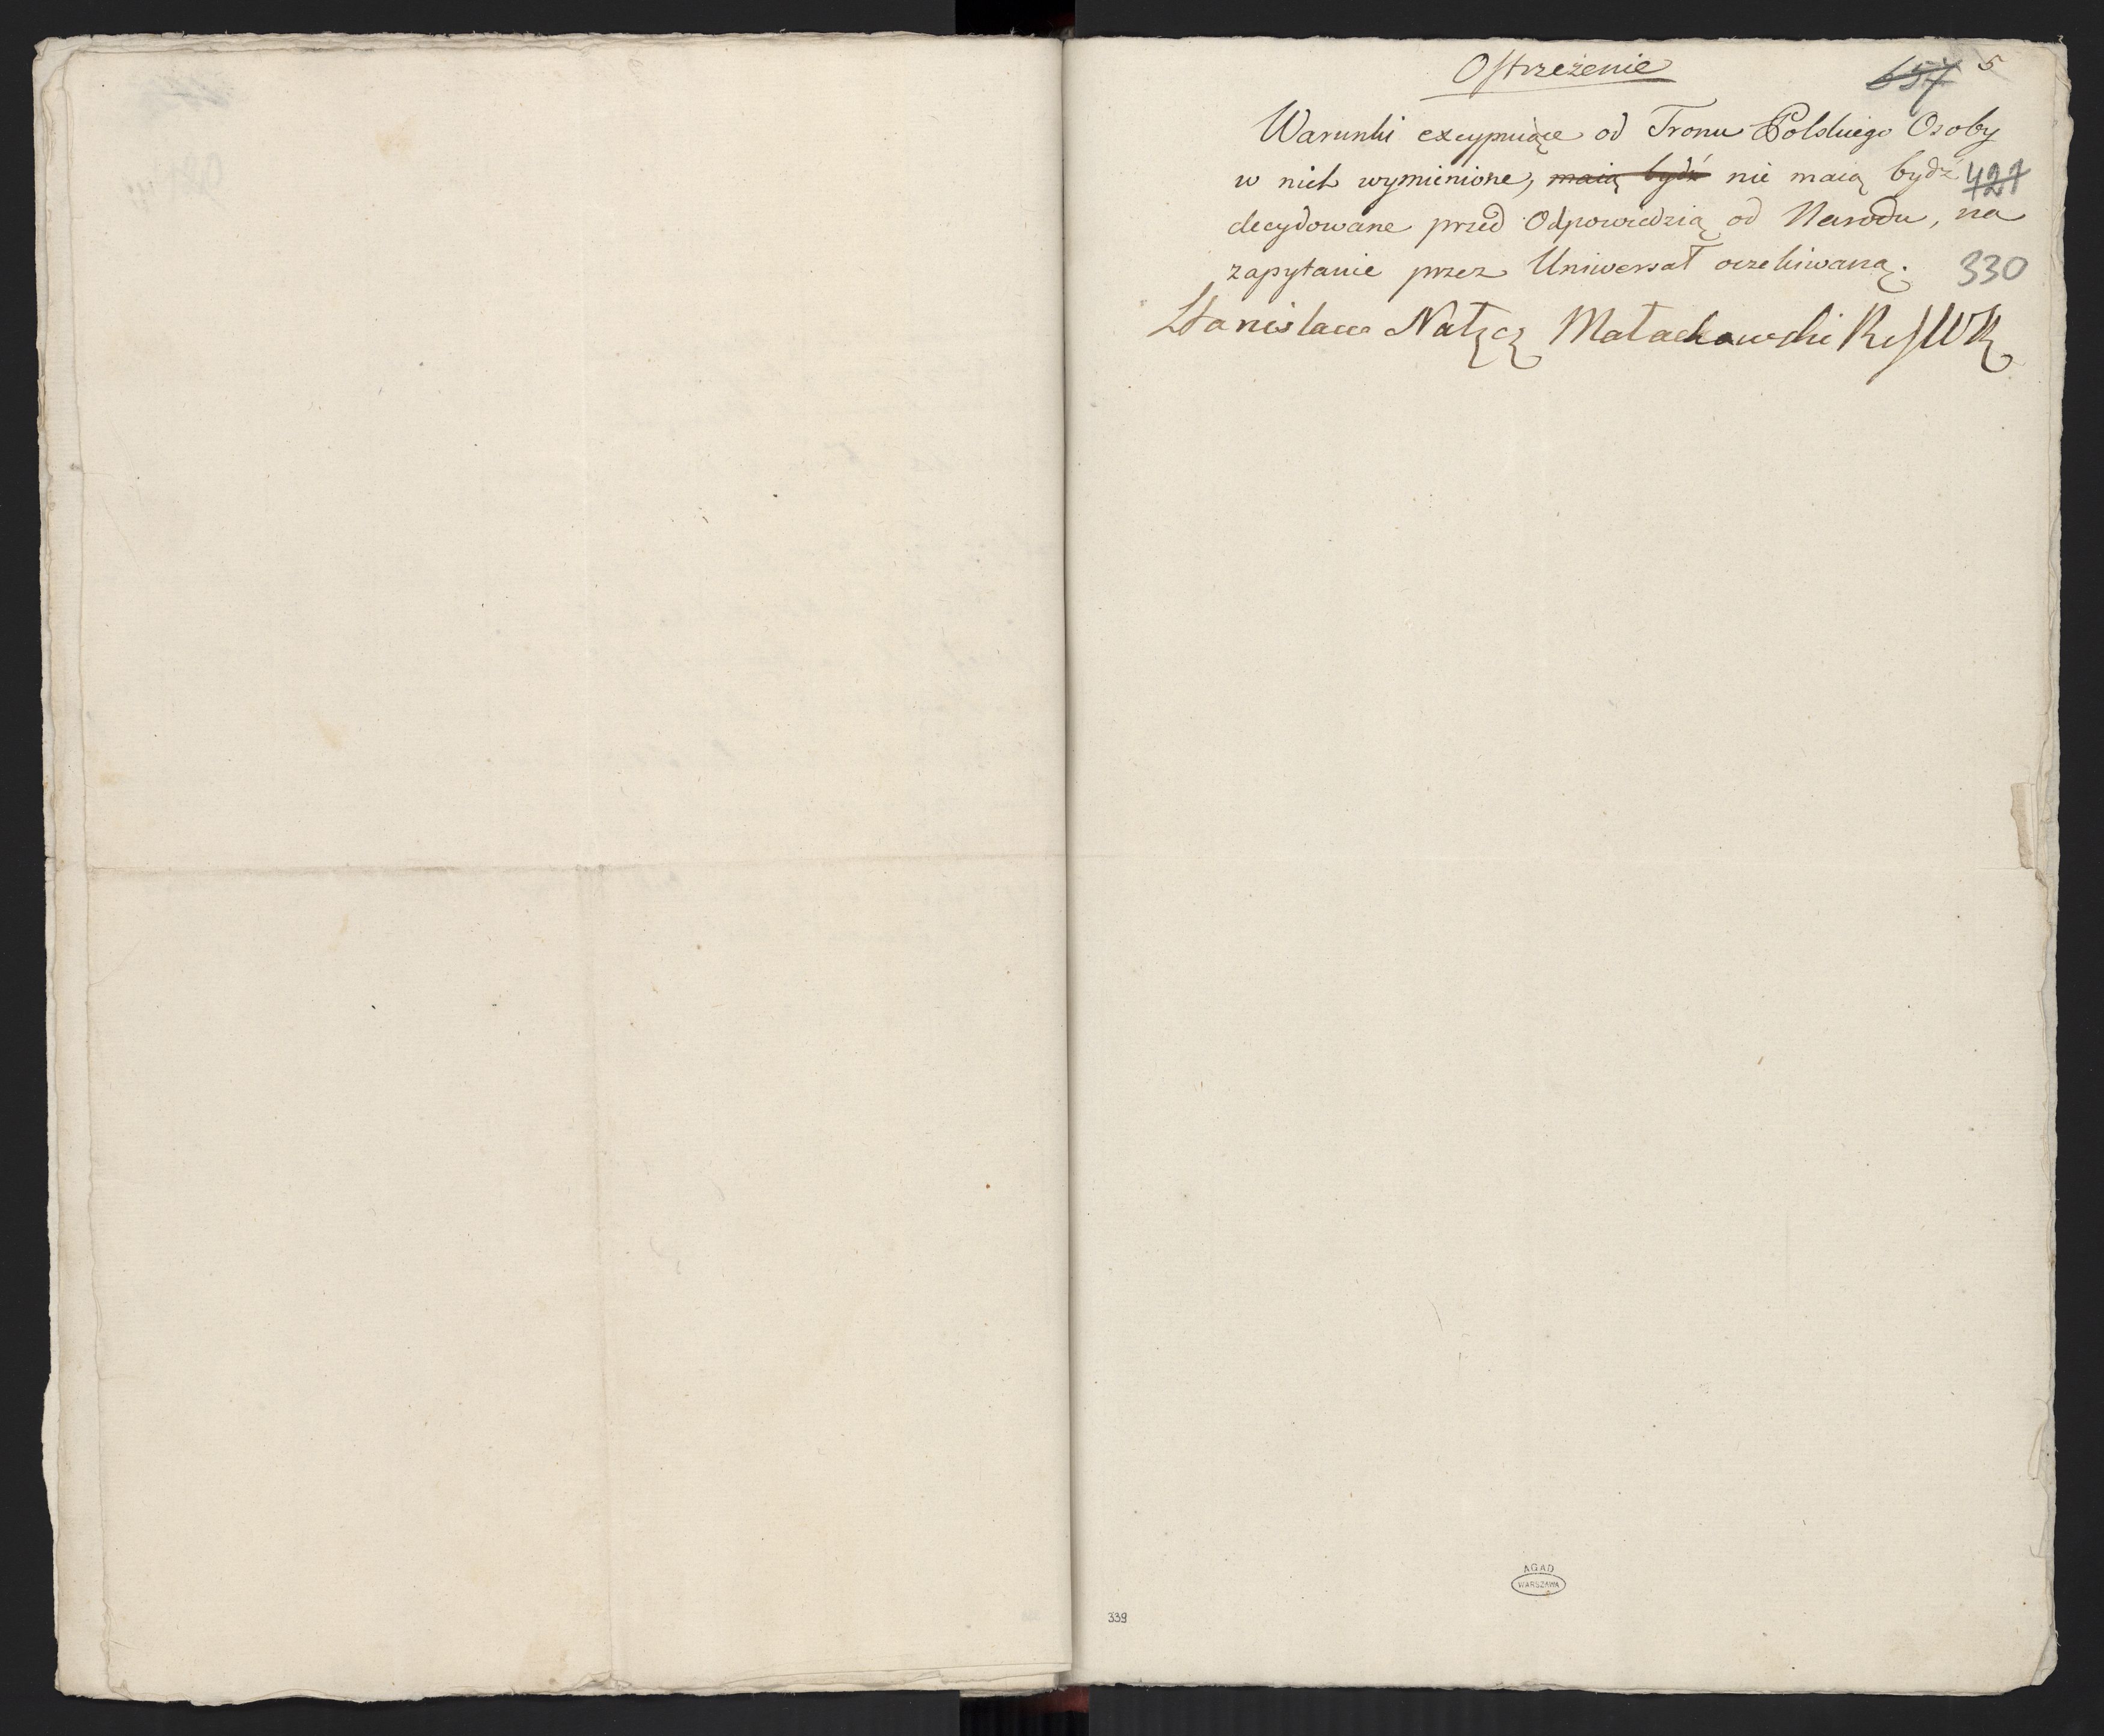 Ostrzeżenie
657 5
Warunki excypuiące od Tronu Polskiego Osoby
w nich wymienione, maią bydź nie maią bydź
421
decydowane przed Odpowiedzią od Narodu, na
zapytanie przez Uniwersał oczekiwaną.
330
Stanisław Nałęcz Małachowski
AGAD
WARSZAWA
339